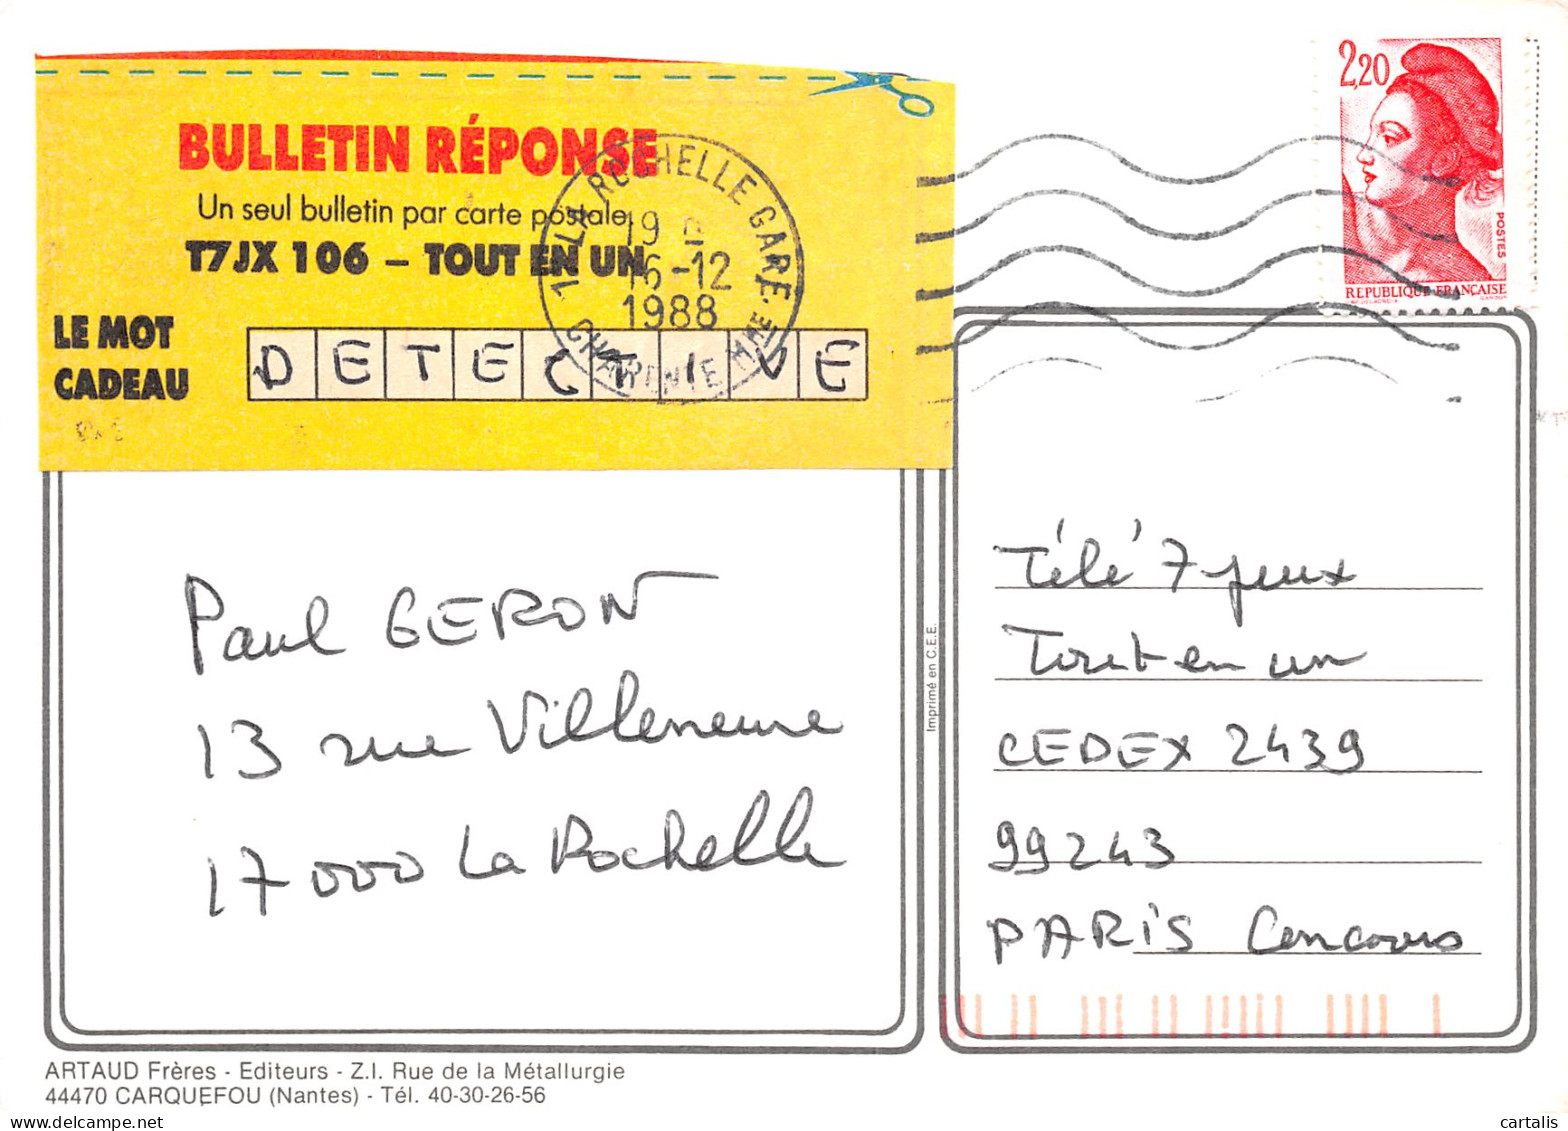 BULLETIN RÉPONSE
Un seul bulletin par carte postale
T7JX 106 – TOUT EN UN
LE MOT
CADEAU
DETECTIVE
1 LA ROCHELLE GARE
19 H
16-12
1988
CHARENTE MME
2,20
POSTES
REPUBLIQUE FRANÇAISE
Paul GERON
13 rue Villeneuve
17000 La Rochelle
Imprimé en C.E.E.
Télé 7 jeux
Tout en un
CEDEX 2439
99243
PARIS Concours
ARTAUD Frères - Editeurs - Z.I. Rue de la Métallurgie
44470 CARQUEFOU (Nantes) - Tél. 40-30-26-56
cartalis